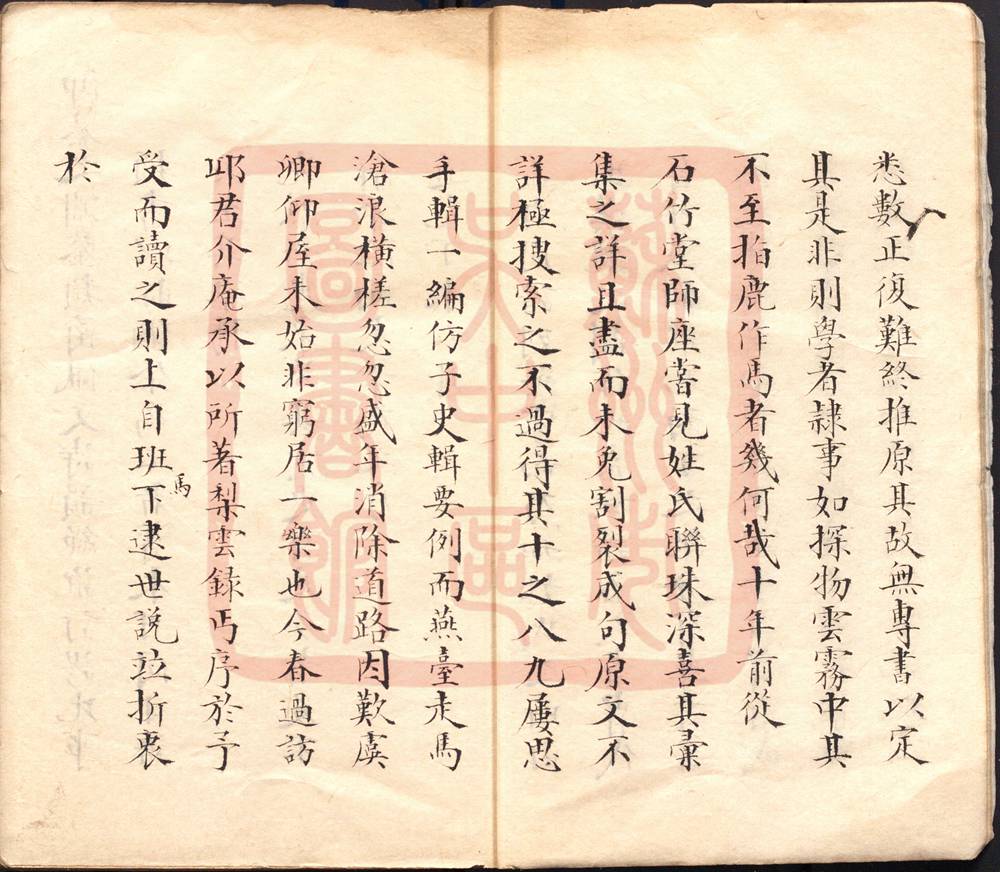 悉數正復難終推原其故無專書以定
其是非則學者隸事如探物雲霧中其
不至指鹿作馬者幾何哉十年前從
石竹堂師座嘗見姓氏聯珠深喜其彙
集之詳且盡而未免割裂成句原文不
詳極搜索之不過得其十之八九屢思
手輯一編仿子史輯要例而燕臺走馬
滄浪橫槎忽忽盛年消除道路因歎虞
卿仰屋未始非窮居一樂也今春過訪
邛君介庵承以所著梨雲録丐序於予
受而讀之則上自班馬下逮世説竝折衷
於
蘇州市
吴中區
圖書館